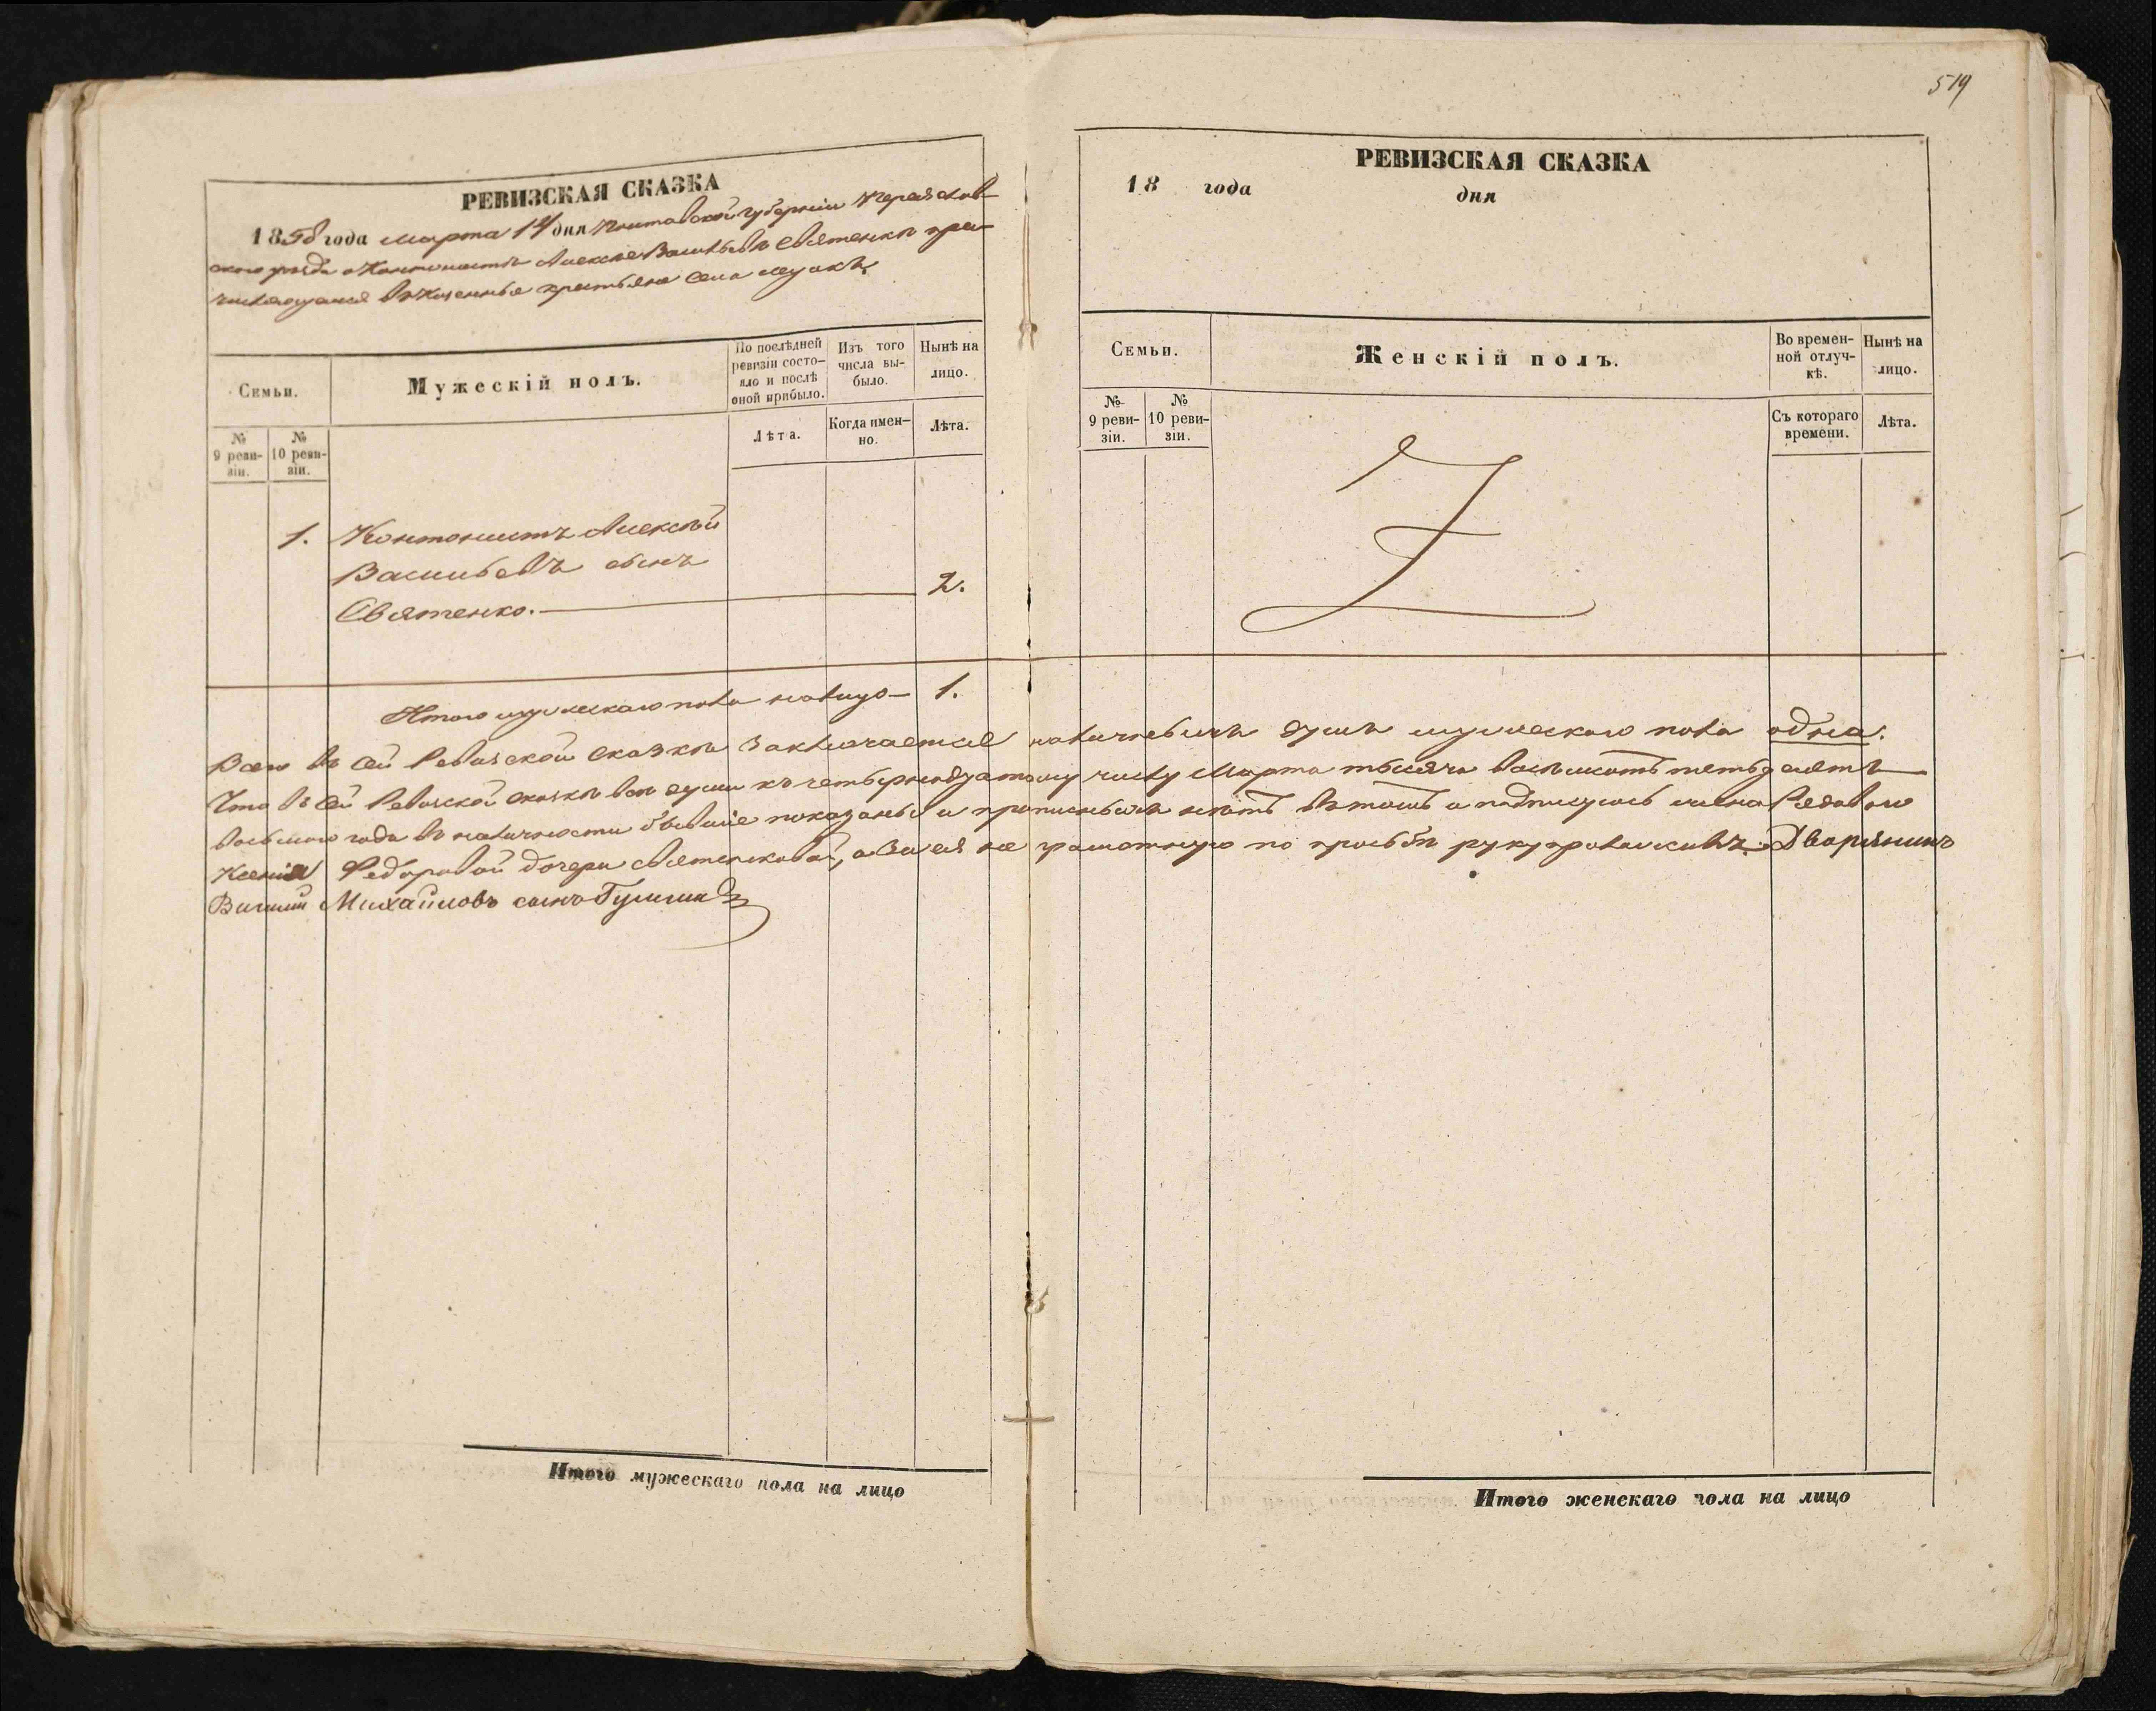 519
РЕВИЗСКАЯ СКАЗКА
1858 года Марта 14 дня Полтавской губерніи Переяслав-
скаго уѣзда о Кантонистѣ Алексѣе Васильевѣ Святенкѣ при-
числяющемся въ Казенные крестьяне села
Семьи.
Мужескій полъ.
По послѣдней ревизіи состо-яло и послѣ оной прибыло.
Изъ того числа вы-было.
Нынѣ на лицо.
№ 9 реви-зіи.
№ 10 реви-зіи.
Лѣта.
Когда имен-но.
Лѣта.
1. Кантонистъ Алексѣй
Васильевъ сынъ
Святенко. 2.
Итого мужескаго пола налицо 1.
РЕВИЗСКАЯ СКАЗКА
18 года дня
Семьи.
Женскій полъ.
Во времен-ной отлуч-кѣ.
Нынѣ на лицо.
№ 9 реви-зіи.
№ 10 реви-зіи.
Съ котораго времени.
Лѣта.
Всего въ сей Ревизской сказкѣ заключается наличныхъ душъ мужескаго пола одна.
Что въ сей Ревизской сказкѣ всѣ души къ четырнадцатому числу Марта тысяча восемьсотъ пятьдесятъ
восьмого года въ наличности бывшіе показаны и прописныхъ нѣтъ въ томъ и подписуюсь жена Рядового
Ксенія Федоровой дочери Святенковой, а за ея не грамотную по прозьбѣ руку приложилъ Дворянинъ
Михайловъ сынъ
Итого мужескаго пола на лицо
Итого женскаго пола на лицо